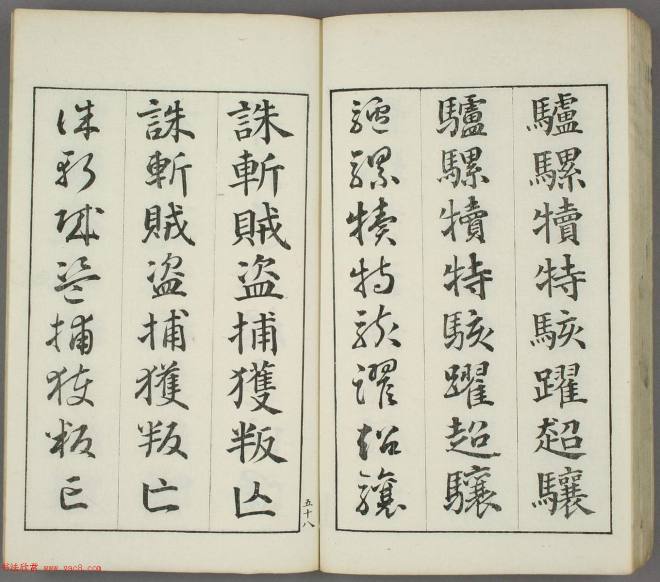 驢騾犢特駭躍超驤
驢騾犢特駭躍超驤
驢騾犢特駭躍超驤
五十八
誅斬賊盜捕獲叛亡
誅斬賊盜捕獲叛亡
誅斬賊盜捕獲叛亡
书法欣赏 www.yac8.com